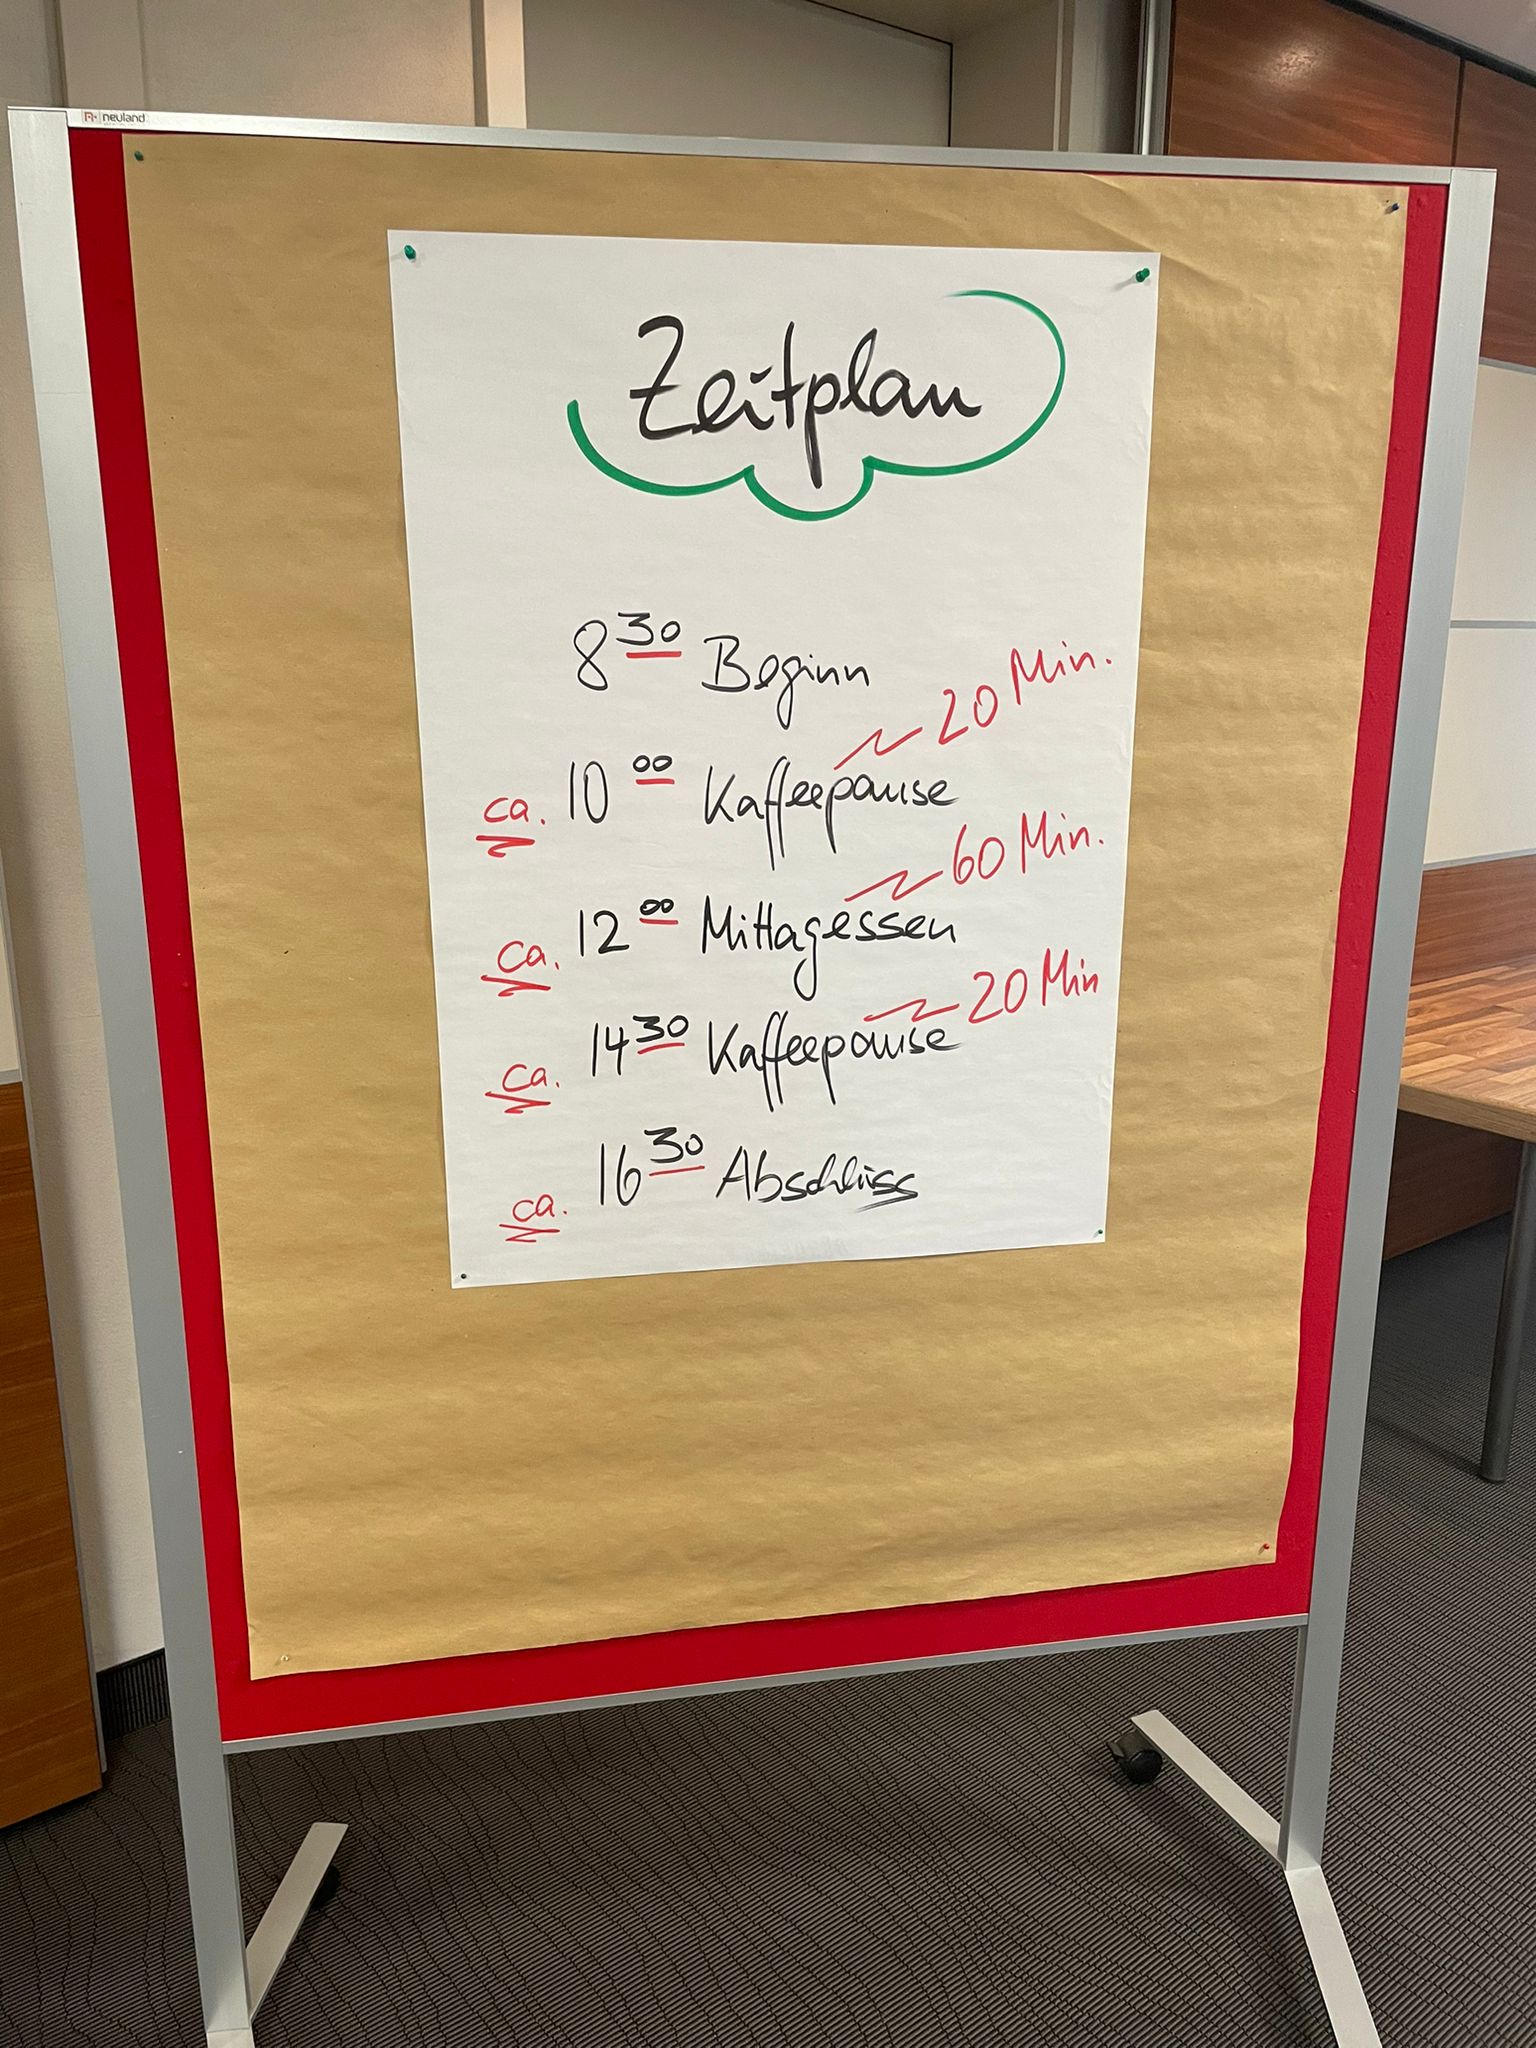 neuland
Zeitplan
8 30 Beginn
20 Min.
ca. 10 00 Kaffeepause
60 Min.
ca. 12 00 Mittagessen
20 Min
ca. 14 30 Kaffeepause
ca. 16 30 Abschluss